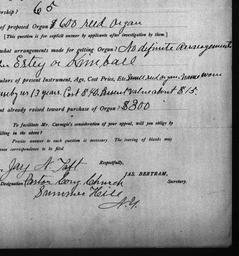 ership? 65
of proposed Organ $600 reed organ
[This question is for explicit answer by applicants after investigation by them.]
what arrangements made for getting Organ? No definite arrangement
Estey or Kimball
culars of present Instrument, Age, Cost Price, Etc. Small reed organ
us 13 years. Cost $40. Present value about $15.
nt already raised toward purchase of Organ? $300
To facilitate Mr. Carnegie's consideration of your appeal, will you oblige by
filling in the above?
Precise answer to each question is necessary. The leaving of blanks may
mean correspondence to be filed.
Respectfully,
Jay N. Taft
JAS. BERTRAM,
Secretary.
Designation Pastor Cong. Church
Summer Hill
N.Y.